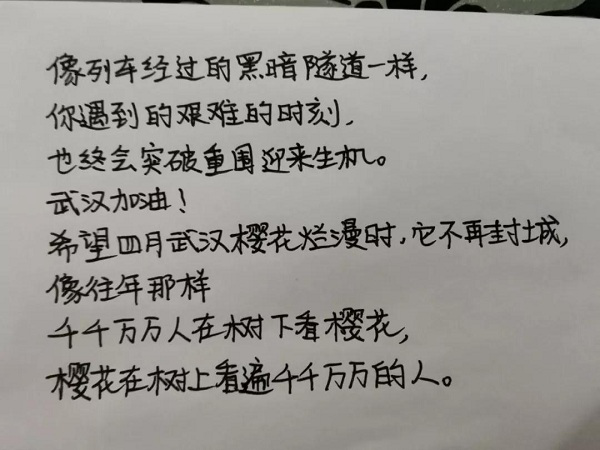 像列车经过的黑暗隧道一样，
你遇到的艰难的时刻，
也终会突破重围迎来生机。
武汉加油！
希望四月武汉樱花烂漫时，它不再封城，
像往年那样
千千万万人在树下看樱花，
樱花在树上看遍千千万万的人。